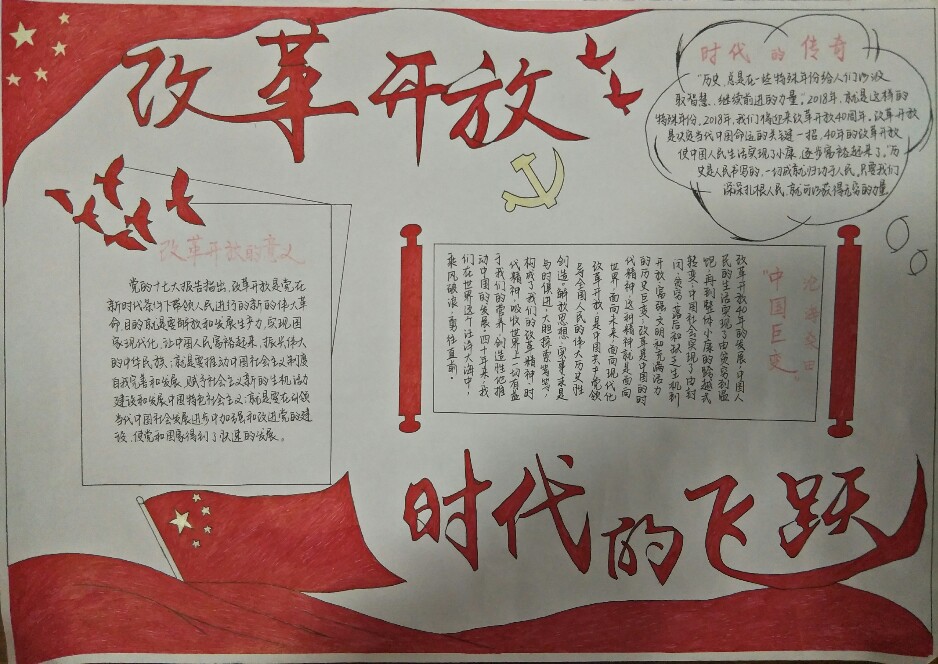 改革开放
时代的传奇
"历史,总是在一些特殊年份给人们以汲
取智慧、继续前进的力量"。2018年,就是这样的
特殊年份。2018年,我们将迎来改革开放40周年。改革开放
是决定当代中国命运的关键一招,40年的改革开放
使中国人民生活实现了小康,逐步富裕起来了。"历
史是人民书写的,一切成就归功于人民。只要我们
深深扎根人民,就可以获得无穷的力量
改革开放的意义
党的十七大报告指出,改革开放是党在
新时代条件下带领人民进行的新的伟大革
命,目的就是要解放和发展生产力,实现国
家现代化,让中国人民富裕起来,振兴伟大
的中华民族;就是要推动中国社会主义制度
自我完善和发展,赋予社会主义新的生机活力
建设和发展中国特色社会主义;就是要在引领
当代中国社会发展进步中加强和改进党的建
设,使党和国家得到了快速的发展。
沧海变田
"中国巨变"
改革开放40年的发展,中国人
民的生活实现了由贫穷到温
饱,再到整体小康的跨越式
转变;中国社会实现了由封
闭、贫穷、落后和缺乏生机到
开放、富强、文明和充满活力
的历史巨变。改革是中国的时
代精神,这种精神就是面向
世界,面向未来,面向现代化
改革开放,是中国共产党领
导全国人民的伟大历史性
创造。"解放思想,实事求是
与时俱进,大胆探索"等等,
构成了我们的改革精神,时
代精神,吸收世界上一切有益
于我们的营养,创造性地推
动中国的发展。四十年来,我
们在世界这个汪洋大海中,
乘风破浪,勇往直前。
时代的飞跃